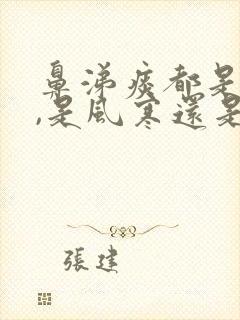 鼻涕痰都是
,是風寒還是
張建